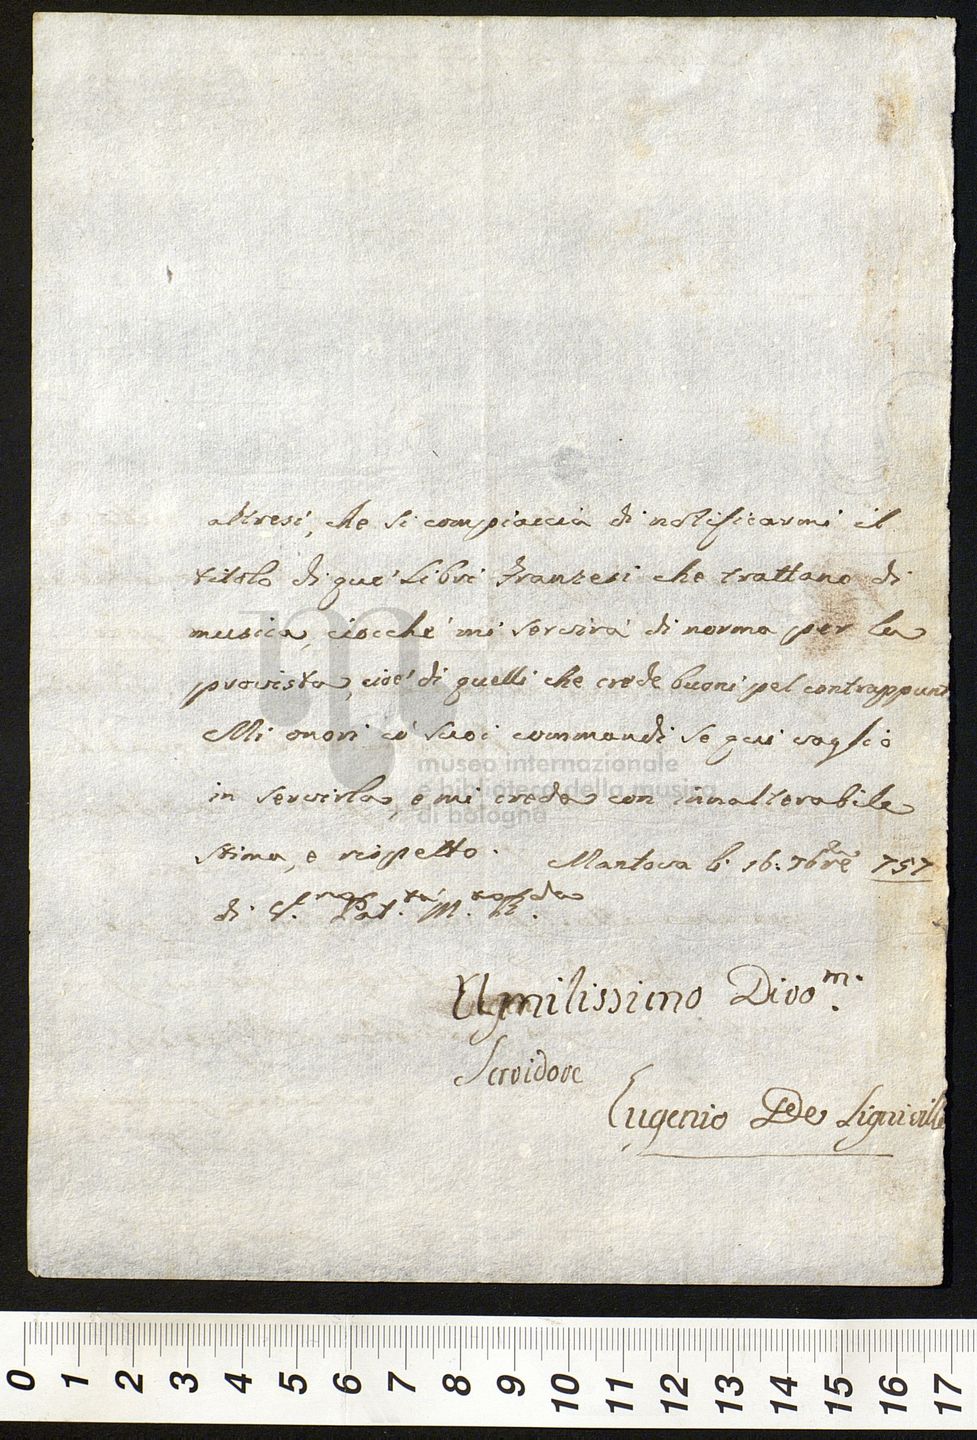 altresì, che si compiaccia di notificarmi il
titolo di que' Libri Franzesi che trattano di
musica, ciocchè mi servirà di norma per la
provista, cioè di quelli che crede buoni pel contrappunt
Mi onori co' suoi commandi se qui vaglio
in servirla, e mi creda con innalterabile
stima, e rispetto.
Mantova li 16: 7bre 757
di V. Pat.tà M. R.da
Umilissimo Divo.m
Servidore
Eugenio De Ligniville
museo internazionale
e biblioteca della musica
di bologna
0 1 2 3 4 5 6 7 8 9 10 11 12 13 14 15 16 17